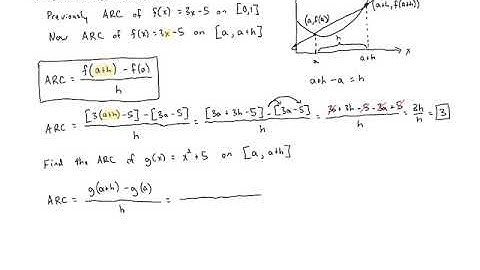 Previously ARC of f(x) = 3x-5 on [0,1]
Now ARC of f(x) = 3x-5 on [a, a+h]
ARC = f(a+h) - f(a) / h
(a, f(a))
(a+h, f(a+h))
h
a
a+h
x
a+h - a = h
ARC = [3(a+h)-5] - [3a-5] / h = [3a+3h-5] - [3a-5] / h = 3a+3h-5-3a+5 / h = 3h / h = 3
Find the ARC of g(x) = x²+5 on [a, a+h]
ARC = g(a+h) - g(a) / h =